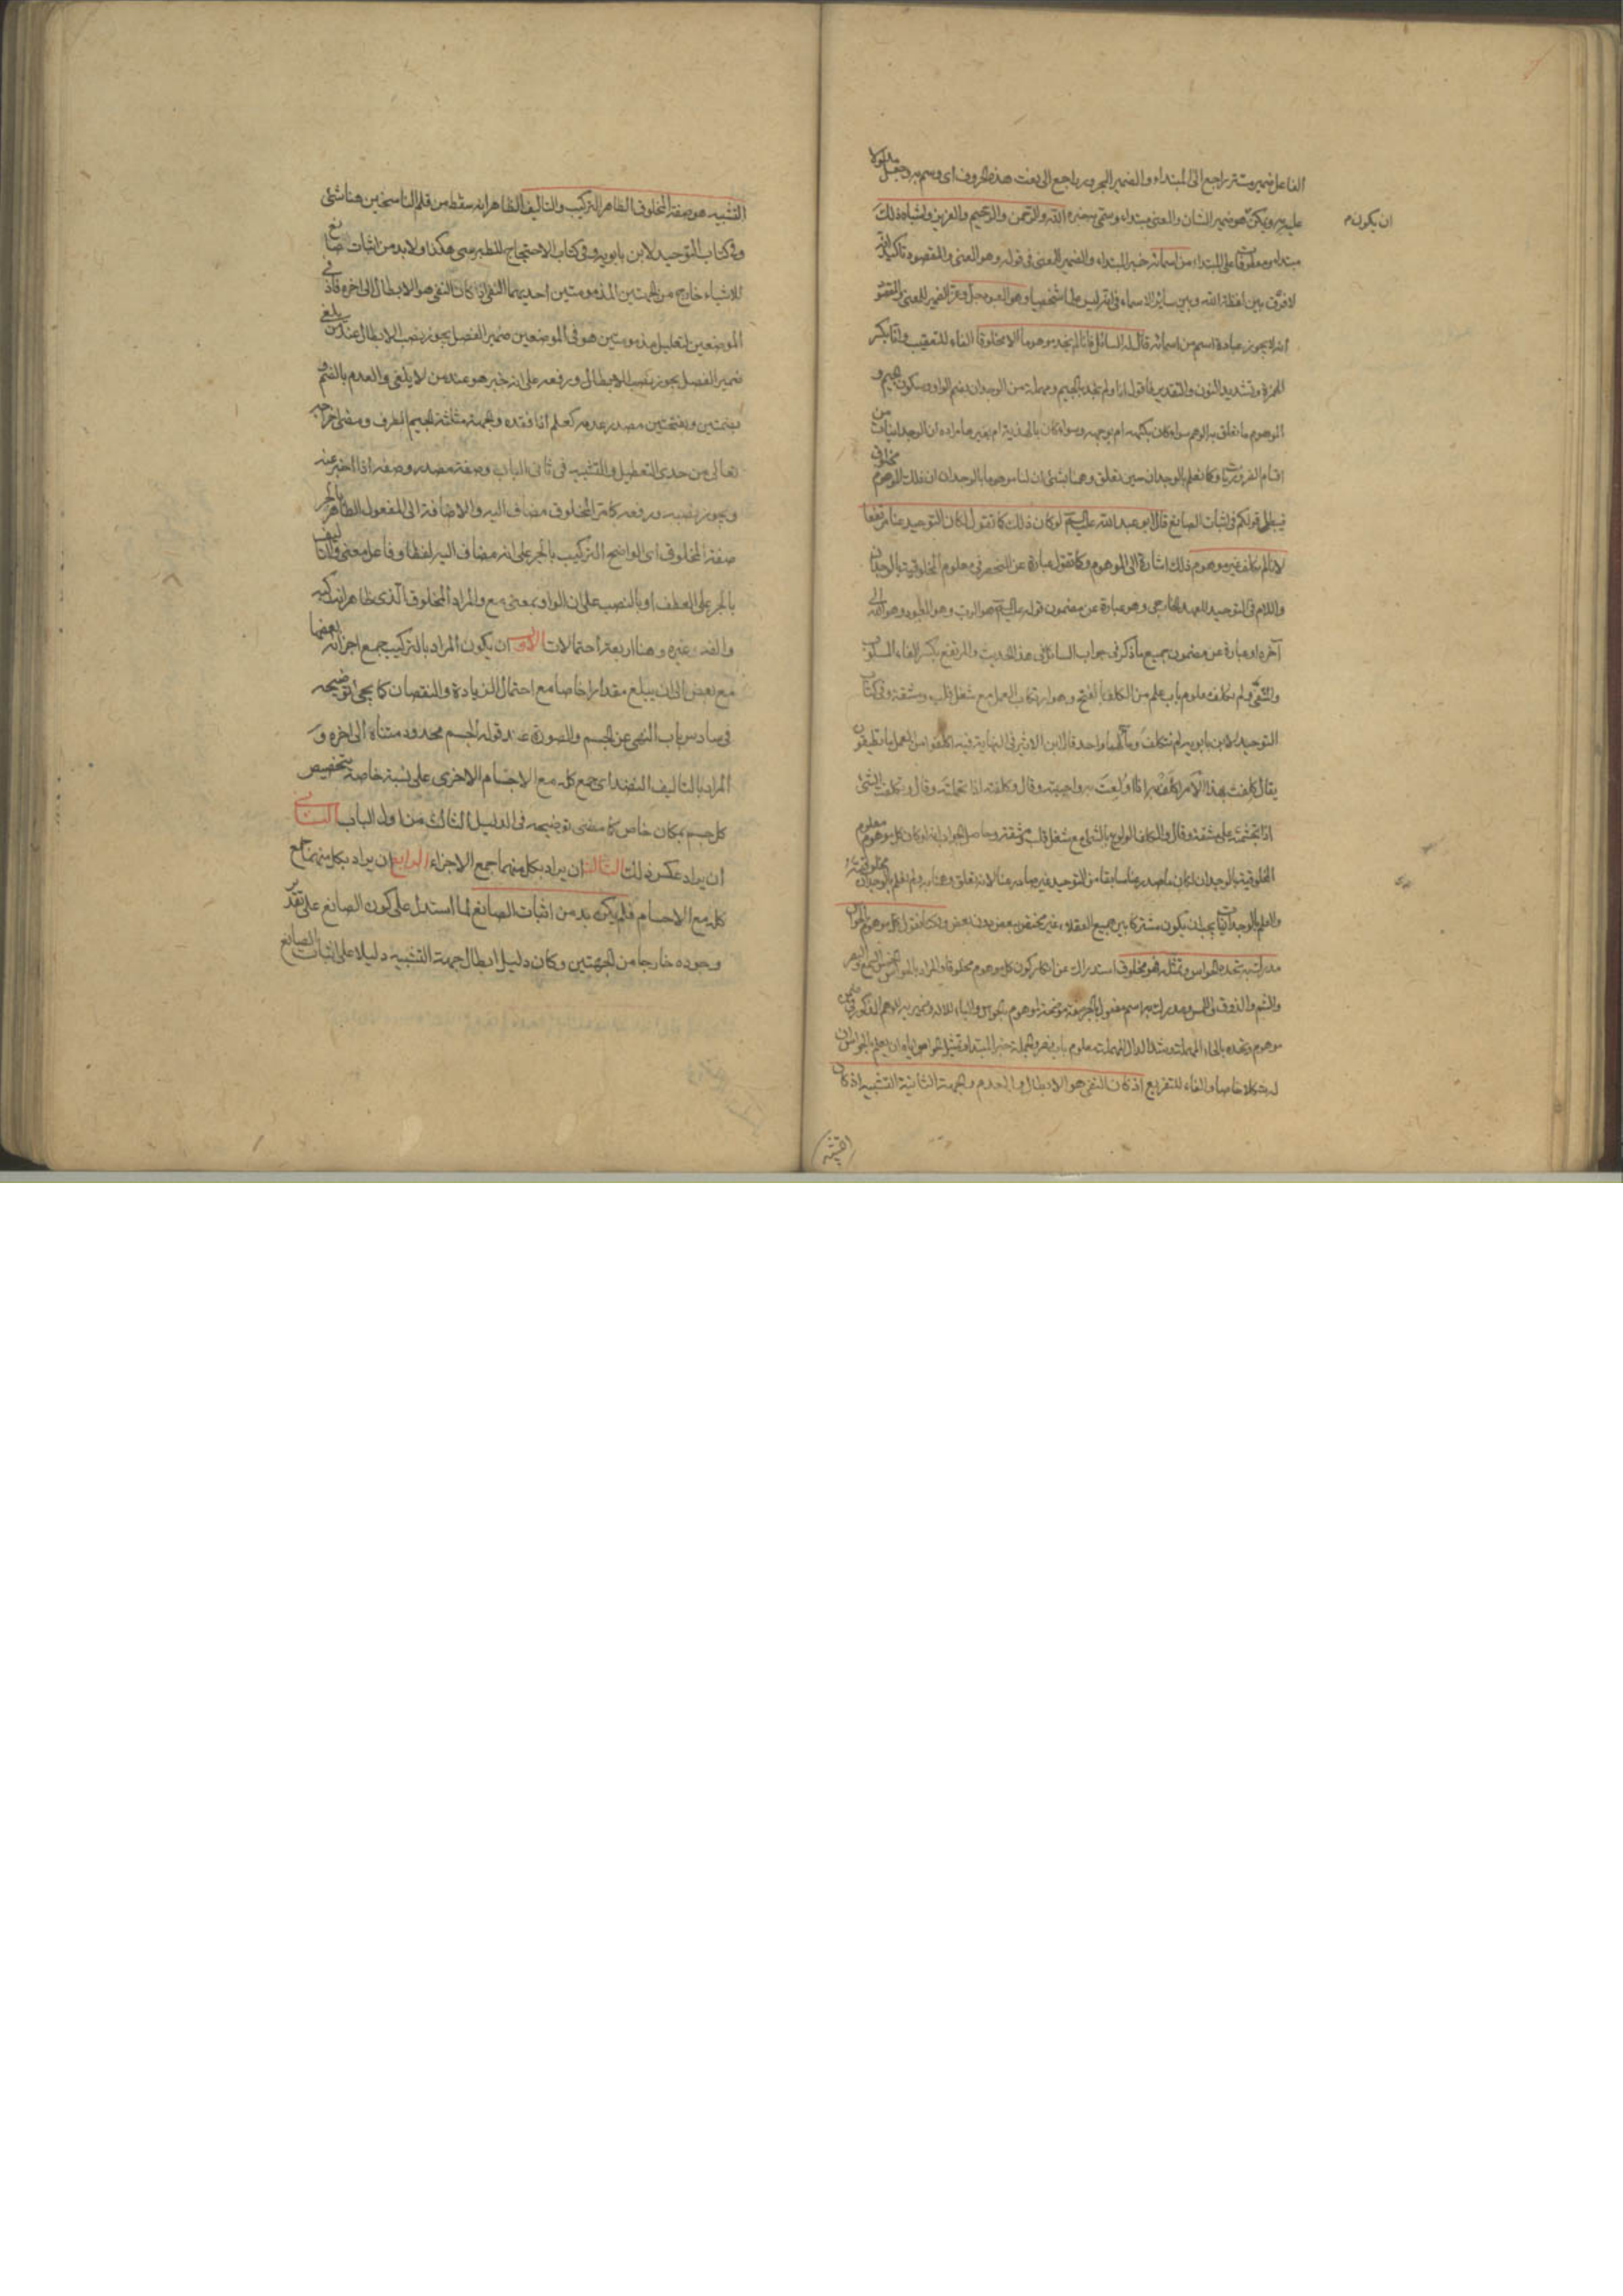 الفاعل ضمير مستتر راجع الى المبتداء والضمير المجرور راجع الى نعت هذه الحروف اى وسم به وجعل مدلولا
عليه به ويمكن ان يكون هو ضمير الشان والمعنى مبتداء وسمى به خبره الله والرحمن والرحيم والعزيز واشباه ذلك
مبتداء ومعطوفا على المبتداء من اسمائه خبر المبتداء والضمير للمعنى فى قوله وهو المعنى والمقصود تاكيد انه
لا فرق بين لفظة الله وبين سائر الاسماء فى انه ليس علما شخصيا وهو المعبود جل وعز الضمير للمعنى والمقصود
انه لا يجوز عبادة اسم من اسمائه قال له السائل فانا لم نجد موهوما الا مخلوقا الفاء للتعقيب وانا بكسر
الهمزة وتشديد النون والتقدير فاقول انا ولم نجد بالجيم ومهملة من الوجدان بضم الواو وسكون الجيم و
الموهوم ما تعلق به الوهم سواء كان بكنهه ام بوجهه وسواء كان بالهذية ام بغيرها مراده ان الوجدانيات من
اقسام الضروريات وكما نعلم بالوجدان حين تعلق وهمنا بشئ ان لنا موهوما بالوجدان ان ذلك الموهوم مخلوق
فيبطل قولكم فى اثبات الصانع قال ابو عبد الله عليه السلم لو كان ذلك كما تقول لكان التوحيد عنا مرتفعا
لانا لم نكلف غير موهوم ذلك اشارة الى الموهوم وكما تقول عبارة عن المنحصر فى معلوم المخلوقية بالوجدان
واللام فى التوحيد للعهد الخارجى وهو عبارة عن مضمون قوله عليه السلم هو الرب وهو المعبود وهو الله الى
آخره او عبارة عن مضمون جميع ما ذكر فى جواب السائل فى هذا الحديث والمرتفع بكسر الفاء المسلوب
والمنفى ولم نكلف معلوم باب علم من الكلف بالفتح وهو ارتكاب العمل مع شغل قلب ومشقة وفى كتاب
التوحيد لابن بابويه لم نتكلف ومآلهما واحد قال ابن الاثير فى النهاية فيه اكلفوا من العمل ما تطيقون
يقال كلفت بهذا الامر اكلف به اذا ولعت به واحببته وقال وكلفته اذا تحملته وقال وتكلفت الشئ
اذا تجشمته على مشقة وقال والكلف الولوع بالشئ مع شغل قلب ومشقة وحاصل الجواب انه لو كان كل موهوم معلوم
المخلوقية بالوجدان لكان ما صدر عنا سابقا من التوحيد غير صادر عنا لانه تعلق وهمنا به ولم نعلم بالوجدان مخلوقيته
والعلم بالوجدانيات يجب ان يكون مشتركا بين جميع العقلاء غير مختص ببعض دون بعض ولكنا نقول كل موهوم بالحواس
مدرك به تحده الحواس وتمثله فهو مخلوق استدراك عن انكار كون كل موهوم مخلوقا والمراد بالحواس الخمس السمع والبصر
والشم والذوق واللمس ومدرك به اسم مفعول بالجر صفة موضحة لموهوم بالحواس والباء للالة وضمير به للوهم المذكور فى ضمن
موهوم وتحده بالحاء المهملة وشد الدال المهملة معلوم باب نصر والجملة خبر المبتدا وتمثيل الحواس اياه ان يعلم بالحواس ان
له شكلا خاصا والفاء للتفريع اذ كان النفى هو الابطال والعدم والجهة الثانية التشبيه اذ كان
التشبيه هو صفة المخلوق الظاهر التركيب والتاليف الظاهر انه سقط من قلم الناسخين هنا شئ
وفى كتاب التوحيد لابن بابويه وفى كتاب الاحتجاج للطبرسى هكذا ولا بد من اثبات صانع
للاشياء خارج من الجهتين المذمومتين احديهما النفى اذا كان النفى هو الابطال الى اخره فاذ فى
الموضعين لتعليل مذمومتين هو فى الموضعين ضمير الفصل يجوز نصب الابطال عند من يلغى
ضمير الفصل يجوز نصب الابطال ورفعه على انه خبر هو عند من لا يلغى والعدم بالضم و
بضمتين وبفتحتين مصدر عدمه كعلم اذا فقده والجهة مثلثة الجيم الطرف ومضى اخراجه
تعالى من حدى التعطيل والتشبيه فى ثانى الباب وصفة مصدر وصفه اذا اخبر عنه
ويجوز نصبه ورفعه كما مر المخلوق مضاف اليه والاضافة الى المفعول الظاهر بالجر
صفة المخلوق اى الواضح التركيب بالجر على انه مضاف اليه لفظا وفاعل معنى والتاليف
بالجر على العطف او بالنصب على ان الواو بمعنى مع والمراد المخلوق الذى ظاهر انه ركبه
والفه غيره وهنا اربعة احتمالات الاول ان يكون المراد بالتركيب جمع اجزائه بعضها
مع بعض الى ان يبلغ مقدارا خاصا مع احتمال الزيادة والنقصان كما يجئ توضيحه
فى سادس باب النهى عن الجسم والصورة عند قوله الجسم محدود متناه الى اخره و
المراد بالتاليف النضد اى جمع كله مع الاجسام الاخرى على نسبة خاصة بتخصيص
كل جسم بمكان خاص كما مضى توضيحه فى الدليل الثالث من اول الباب الثانى
ان يراد عكس ذلك الثالث ان يراد بكل منهما جمع الاجزاء الرابع ان يراد بكل منهما جمع
كله مع الاجسام فلم يكن بد من اثبات الصانع لما استدل على كون الصانع على تقدير
وجوده خارجا من الجهتين وكان دليل ابطال جهة التشبيه دليلا على اثبات الصانع